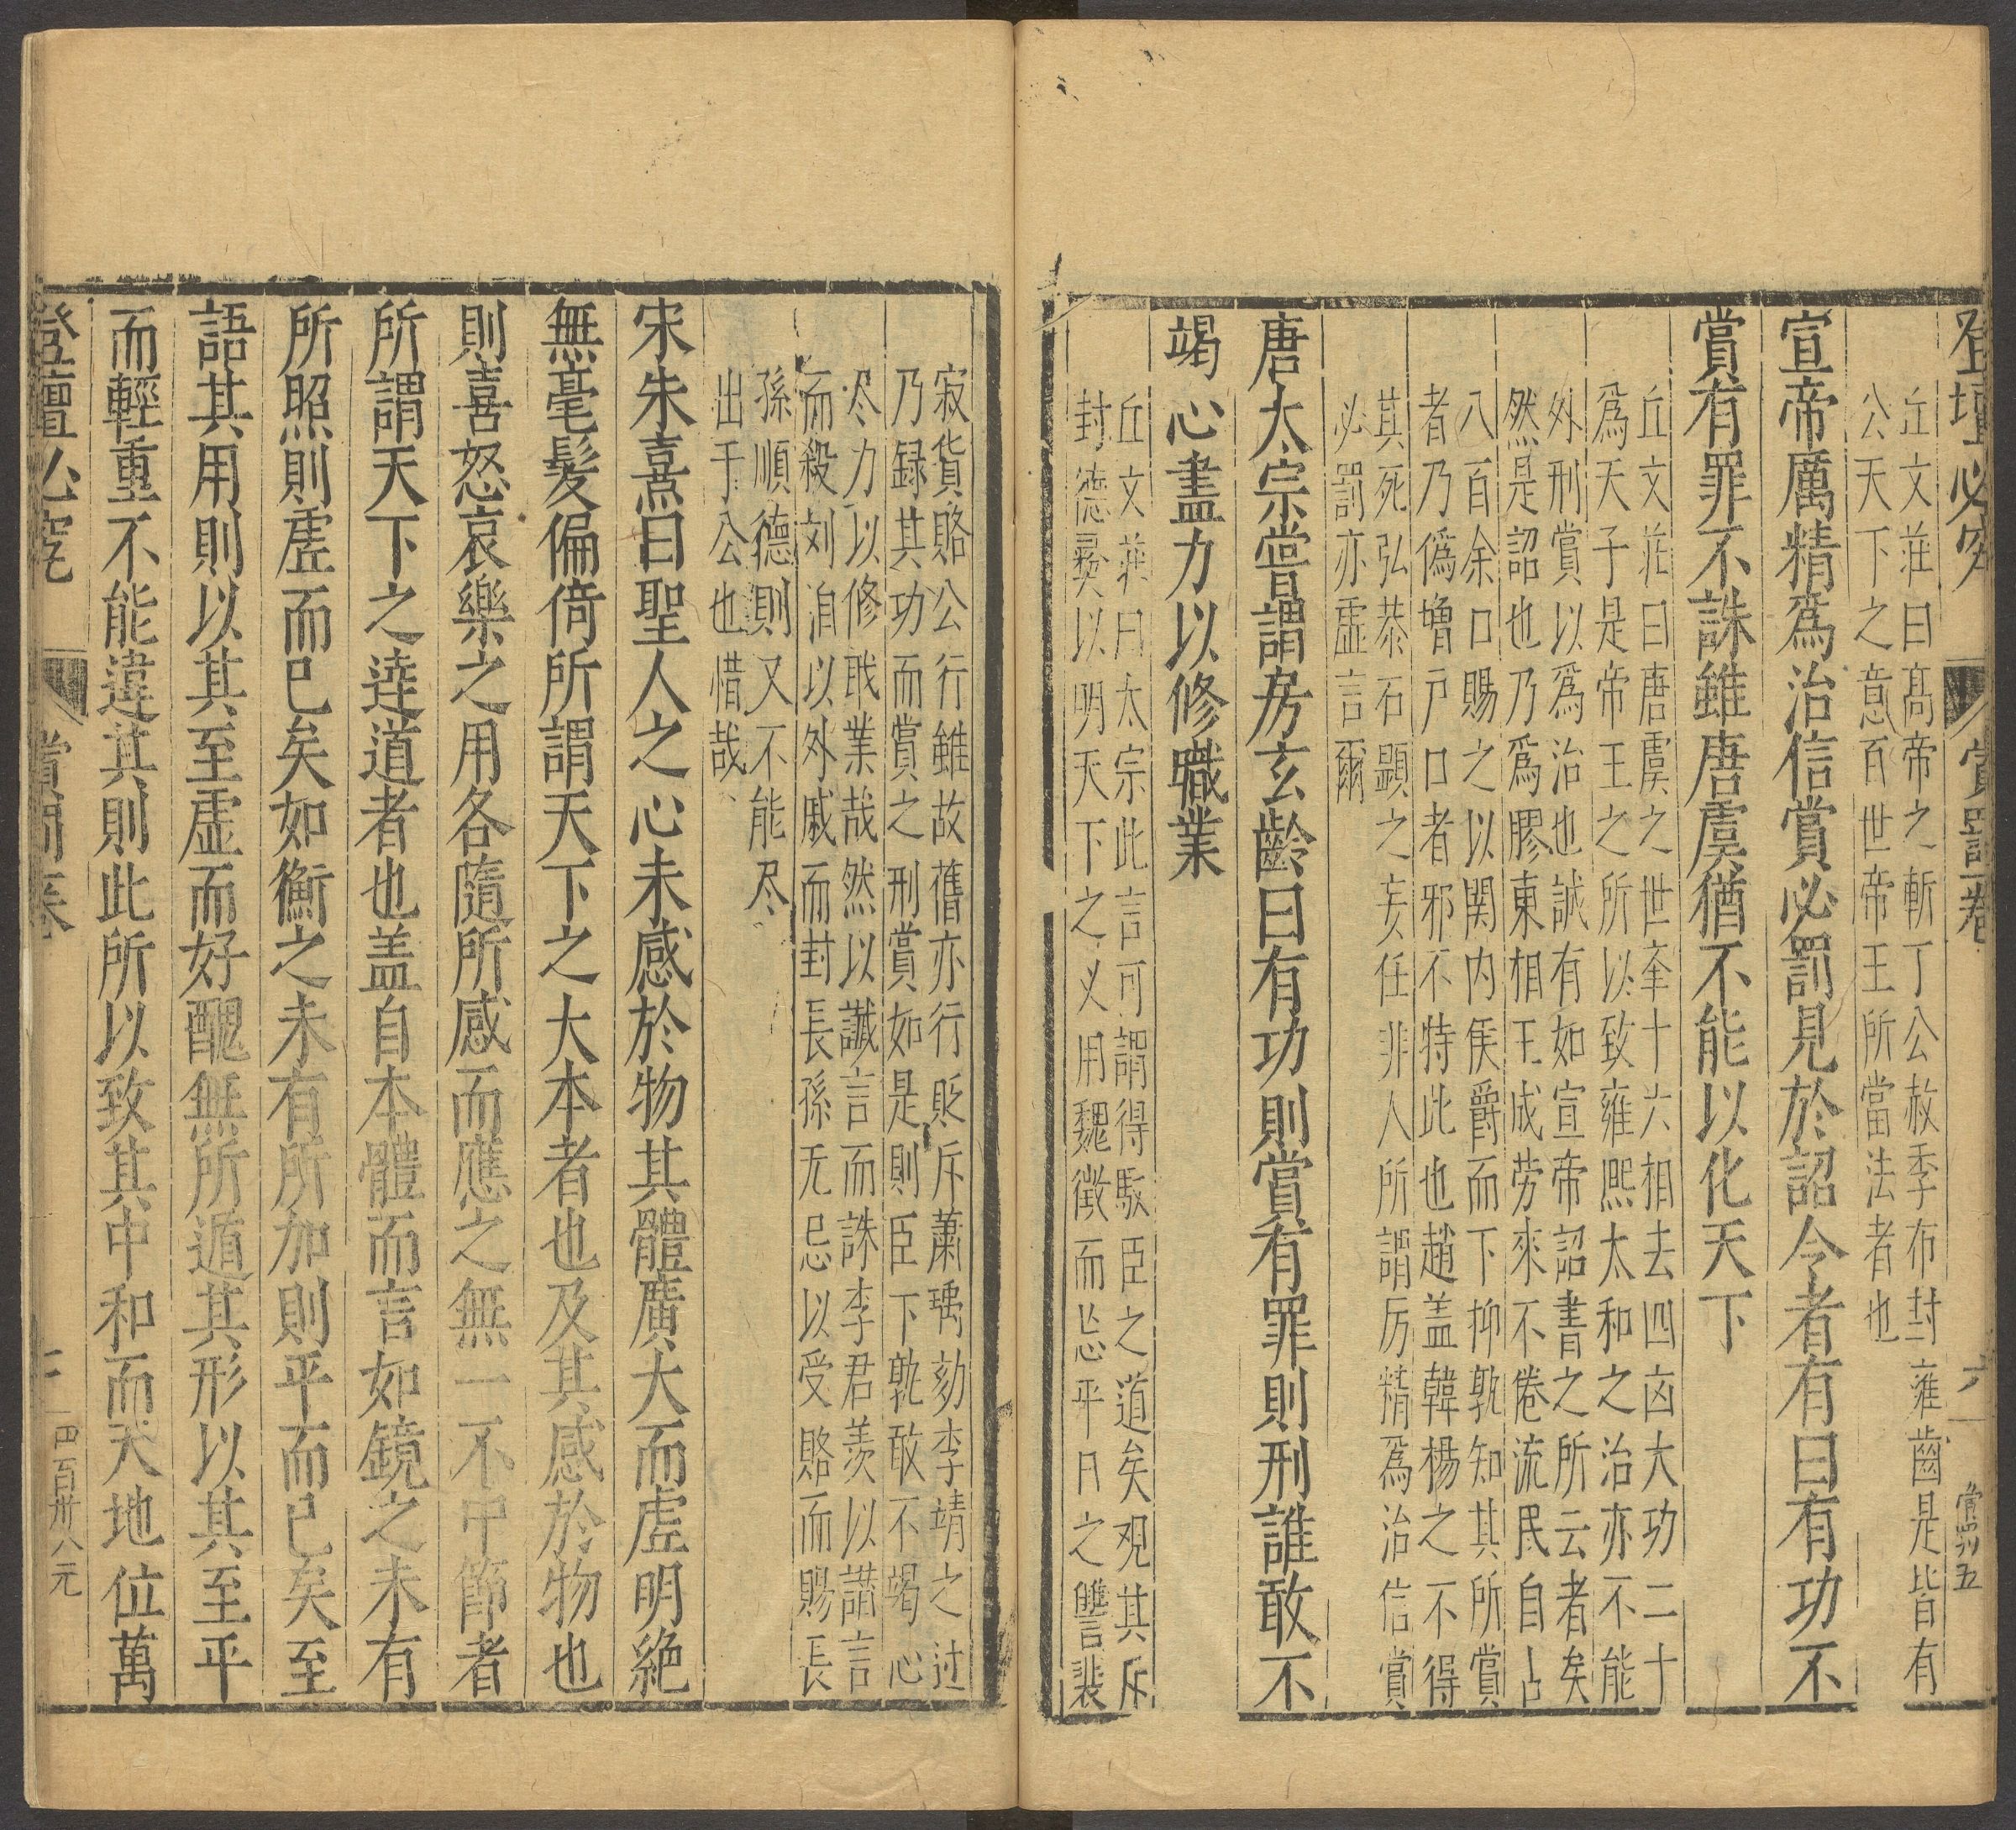 登壇必究 賞罰卷 六 賞罰五
丘文莊曰髙帝之斬丁公赦季布封雍齒是皆有
公天下之意百世帝王所當法者也
宣帝厲精爲治信賞必罰見於詔令者有曰有功不
賞有罪不誅雖唐虞猶不能以化天下
丘文莊曰唐虞之世舉十六相去四凶大功二十
爲天子是帝王之所以致雍熙太和之治亦不能
外刑賞以爲治也誠有如宣帝詔書之所云者矣
然是詔也乃爲膠東相王成勞來不倦流民自占
八百余口賜之以関内侯爵而下抑孰知其所賞
者乃僞增戸口者邪不特此也趙盖韓楊之不得
其死弘恭石顕之妄任非人所謂厉精爲治信賞
必罰亦虛言爾
唐太宗嘗謂房玄齡曰有功則賞有罪則刑誰敢不
竭心盡力以修職業
丘文莊曰太宗此言可謂得馭臣之道矣观其斥
封德彞以明天下之义用魏徵而忘平日之讐裴
寂貨賂公行雖故舊亦行貶斥蕭瑀劾李靖之过
乃録其功而賞之刑賞如是則臣下孰敢不竭心
尽力以修戢業哉然以讖言而誅李君羨以譛言
而殺刘洎以外戚而封長孫无忌以受賂而賜長
孫順德則又不能尽
出于公也惜哉
宋朱熹曰聖人之心未感於物其體廣大而虛明絶
無毫髮偏倚所謂天下之大本者也及其感於物也
則喜怒哀樂之用各隨所感而應之無一不中節者
所謂天下之達道者也盖自本體而言如鏡之未有
所照則虛而已矣如衡之未有所加則平而已矣至
語其用則以其至虛而好醜無所遁其形以其至平
而輕重不能違其則此所以致其中和而天地位萬
登壇必究 賞罰卷 四百卅八元